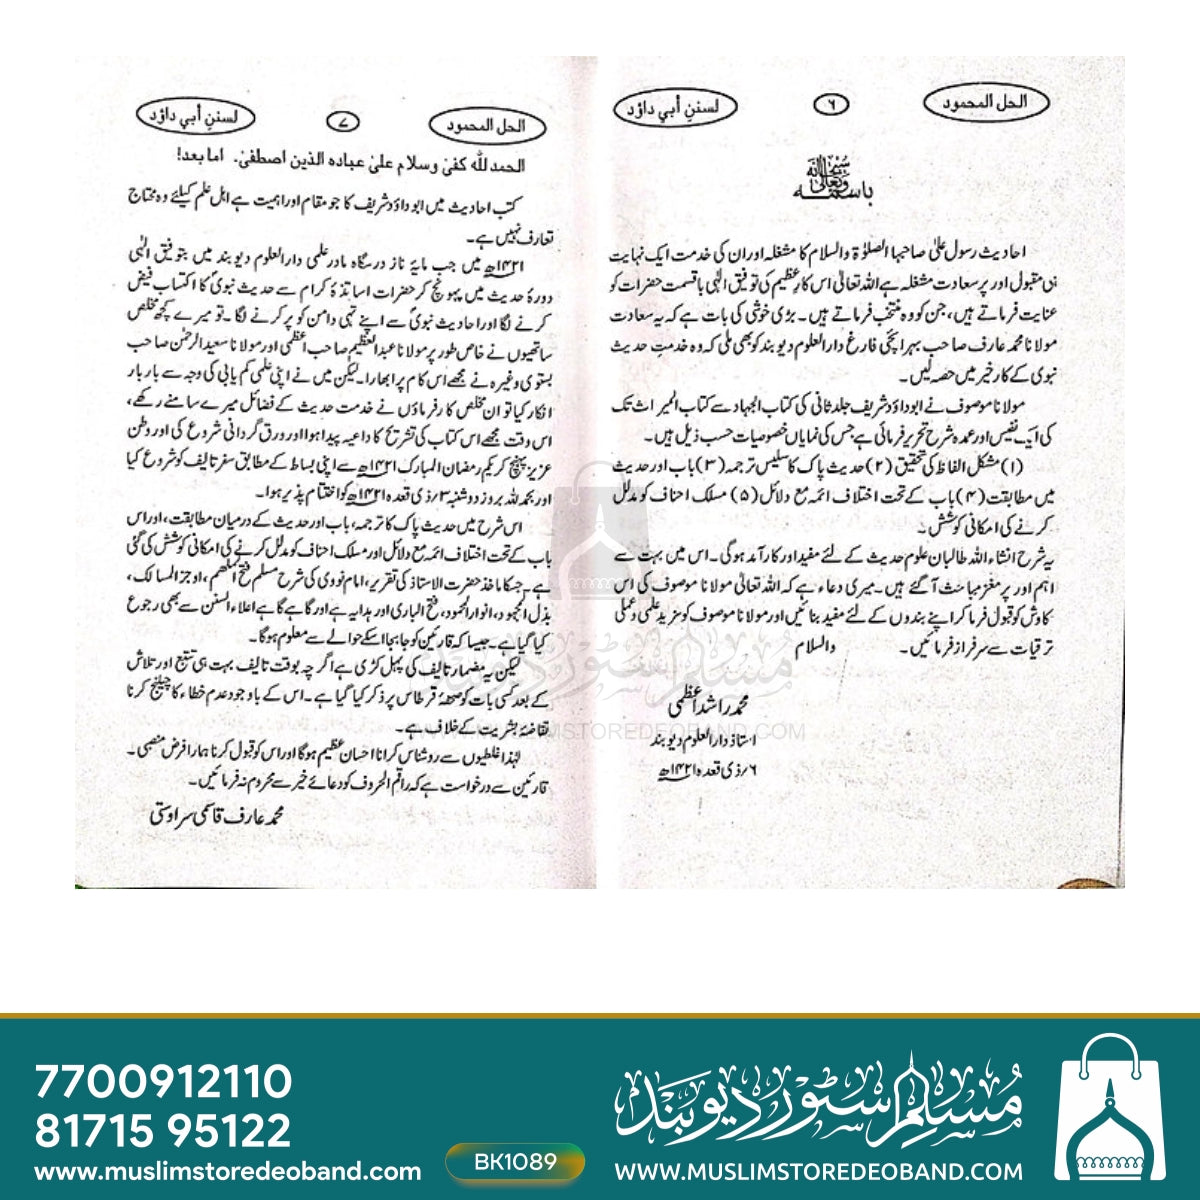 الحل المحمود
٦
لسنن أبي داؤد
باسمہ سبحانہ وتعالیٰ
احادیث رسول علیٰ صاحبہا الصلوٰۃ والسلام کا مشغلہ اور ان کی خدمت ایک نہایت
ہی مقبول اور پر سعادت مشغلہ ہے اللہ تعالیٰ اس کار عظیم کی توفیق الٰہی باقسمت حضرات کو
عنایت فرماتے ہیں، جن کو وہ منتخب فرماتے ہیں۔ بڑی خوشی کی بات ہے کہ یہ سعادت
مولانا محمد عارف صاحب بہرائچی فارغ دارالعلوم دیوبند کو بھی ملی کہ وہ خدمتِ حدیث
نبوی کے کار خیر میں حصہ لیں۔
مولانا موصوف نے ابوداؤد شریف جلد ثانی کی کتاب الجہاد سے کتاب المیراث تک
کی ایک نفیس اور عمدہ شرح تحریر فرمائی ہے جس کی نمایاں خصوصیات حسب ذیل ہیں۔
(۱) مشکل الفاظ کی تحقیق (۲) حدیث پاک کا سلیس ترجمہ (۳) باب اور حدیث
میں مطابقت (۴) باب کے تحت اختلاف ائمہ مع دلائل (۵) مسلک احناف کو مدلل
کرنے کی امکانی کوشش۔
یہ شرح انشاء اللہ طالبان علوم حدیث کے لئے مفید اور کارآمد ہوگی۔ اس میں بہت سے
اہم اور پر مغز مباحث آگئے ہیں۔ میری دعاء ہے کہ اللہ تعالیٰ مولانا موصوف کی اس
کاوش کو قبول فرما کر اپنے بندوں کے لئے مفید بنائیں اور مولانا موصوف کو مزید علمی و عملی
ترقیات سے سرفراز فرمائیں۔ والسلام
محمد راشد اعظمی
استاذ دارالعلوم دیوبند
۶؍ ذی قعدہ ۱۴۲۱ھ
الحل المحمود
٧
لسنن أبي داؤد
الحمد للہ کفیٰ وسلام علیٰ عبادہ الذین اصطفیٰ۔ اما بعد!
کتب احادیث میں ابوداؤد شریف کا جو مقام اور اہمیت ہے اہل علم کیلئے وہ محتاج
تعارف نہیں ہے۔
۱۴۲۱ھ میں جب مایۂ ناز درسگاہ مادر علمی دارالعلوم دیوبند میں بتوفیق الٰہی
دورۂ حدیث میں پہونچ کر حضرات اساتذۂ کرام سے حدیث نبوی کا اکتساب فیض
کرنے لگا اور احادیث نبوی سے اپنے تہی دامن کو پر کرنے لگا۔ تو میرے کچھ مخلص
ساتھیوں نے خاص طور پر مولانا عبدالعظیم صاحب اعظمی اور مولانا سعید الرحمٰن صاحب
بستوی وغیرہ نے مجھے اس کام پر ابھارا۔ لیکن میں نے اپنی علمی کم یابی کی وجہ سے بار بار
انکار کیا تو ان مخلص کارفرماؤں نے خدمت حدیث کے فضائل میرے سامنے رکھے،
اس وقت مجھے اس کتاب کی تشریح کا داعیہ پیدا ہوا اور ورق گردانی شروع کی اور وطن
عزیز پہنچ کر یکم رمضان المبارک ۱۴۲۱ھ سے اپنی بساط کے مطابق سفر تالیف کو شروع کیا
اور بحمد للہ بروز دو شنبہ ۳؍ ذی قعدہ ۱۴۲۱ھ کو اختتام پذیر ہوا۔
اس شرح میں حدیث پاک کا ترجمہ، باب اور حدیث کے درمیان مطابقت، اور اس
باب کے تحت اختلاف ائمہ مع دلائل اور مسلک احناف کو مدلل کرنے کی امکانی کوشش کی گئی
ہے۔ جسکا ماخذ حضرت الاستاذ کی تقریر، امام نووی کی شرح مسلم فتح الملہم، اوجز المسالک،
بذل المجہود، انوار المحمود، فتح الباری اور ہدایہ ہے اور گاہے گاہے اعلاء السنن سے بھی رجوع
کیا گیا ہے۔ جیسا کہ قارئین کو جابجا اسکے حوالے سے معلوم ہوگا۔
لیکن یہ مضمار تالیف کی پہل کڑی ہے اگرچہ بوقت تالیف بہت ہی تتبع اور تلاش
کے بعد کسی بات کو صفحۂ قرطاس پر ذکر کیا گیا ہے۔ اس کے باوجود عدم خطاء کا چیلنج کرنا
تقاضۂ بشریت کے خلاف ہے۔
لہٰذا غلطیوں سے روشناس کرانا احسان عظیم ہوگا اور اس کو قبول کرنا ہمارا فرض منصبی۔
قارئین سے درخواست ہے کہ راقم الحروف کو دعائے خیر سے محروم نہ فرمائیں۔
محمد عارف قاسمی سراوستی
مسلم سٹور دیوبند
WWW.MUSLIMSTOREDEOBAND.COM
7700912110
81715 95122
www.muslimstoredeoband.com
BK1089
مسلم سٹور دیوبند
WWW.MUSLIMSTOREDEOBAND.COM